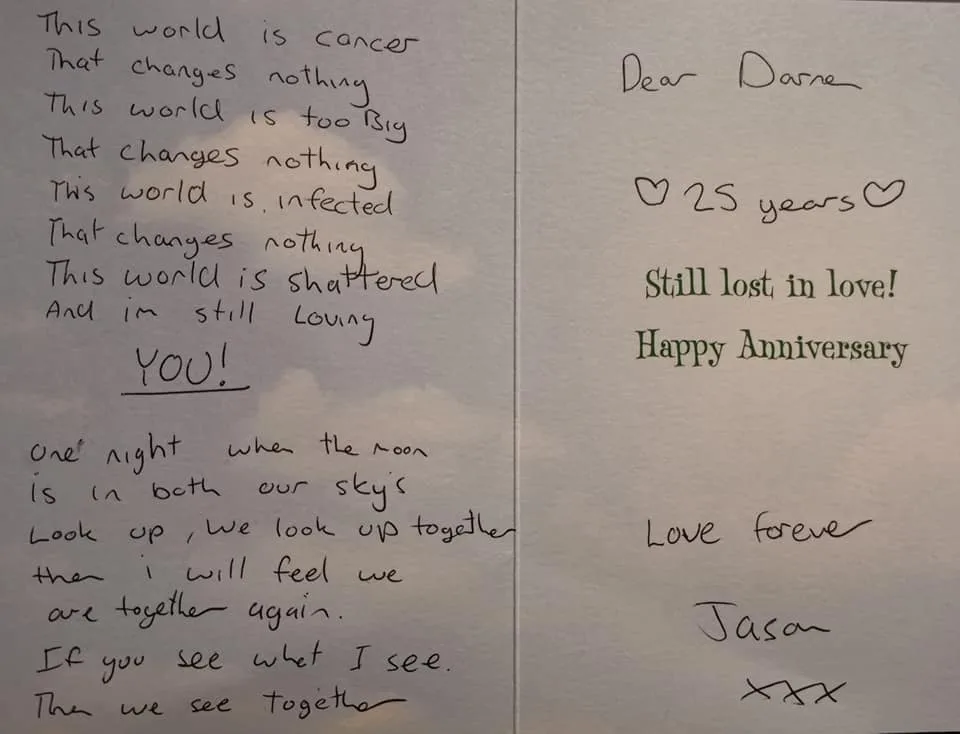 This world is cancer
That changes nothing
This world is too Big
That changes nothing
This world is infected
That changes nothing
This world is shattered
And im still Loving
YOU!
one night when the moon
is in both our sky's
Look up, We look up together
then i will feel we
are together again.
If you see what I see.
Then we see together
Dear
♡ 25 years ♡
Still lost in love!
Happy Anniversary
Love forever
Jason
xxx